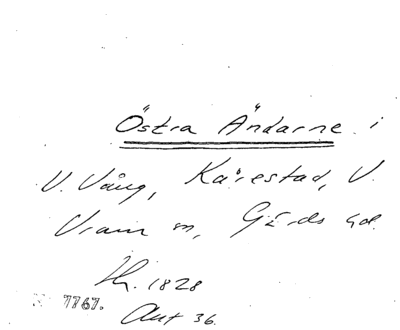 Östra Ändarne i
V. Vång, Kärestad, V.
Vram m, Gärds hd.
1828
7767.
Akt 36.